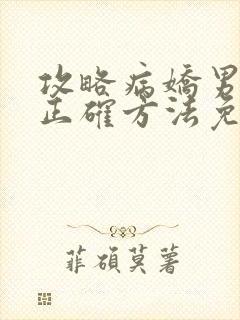 攻略病嬌男
正確方法免
菲碩莫薯